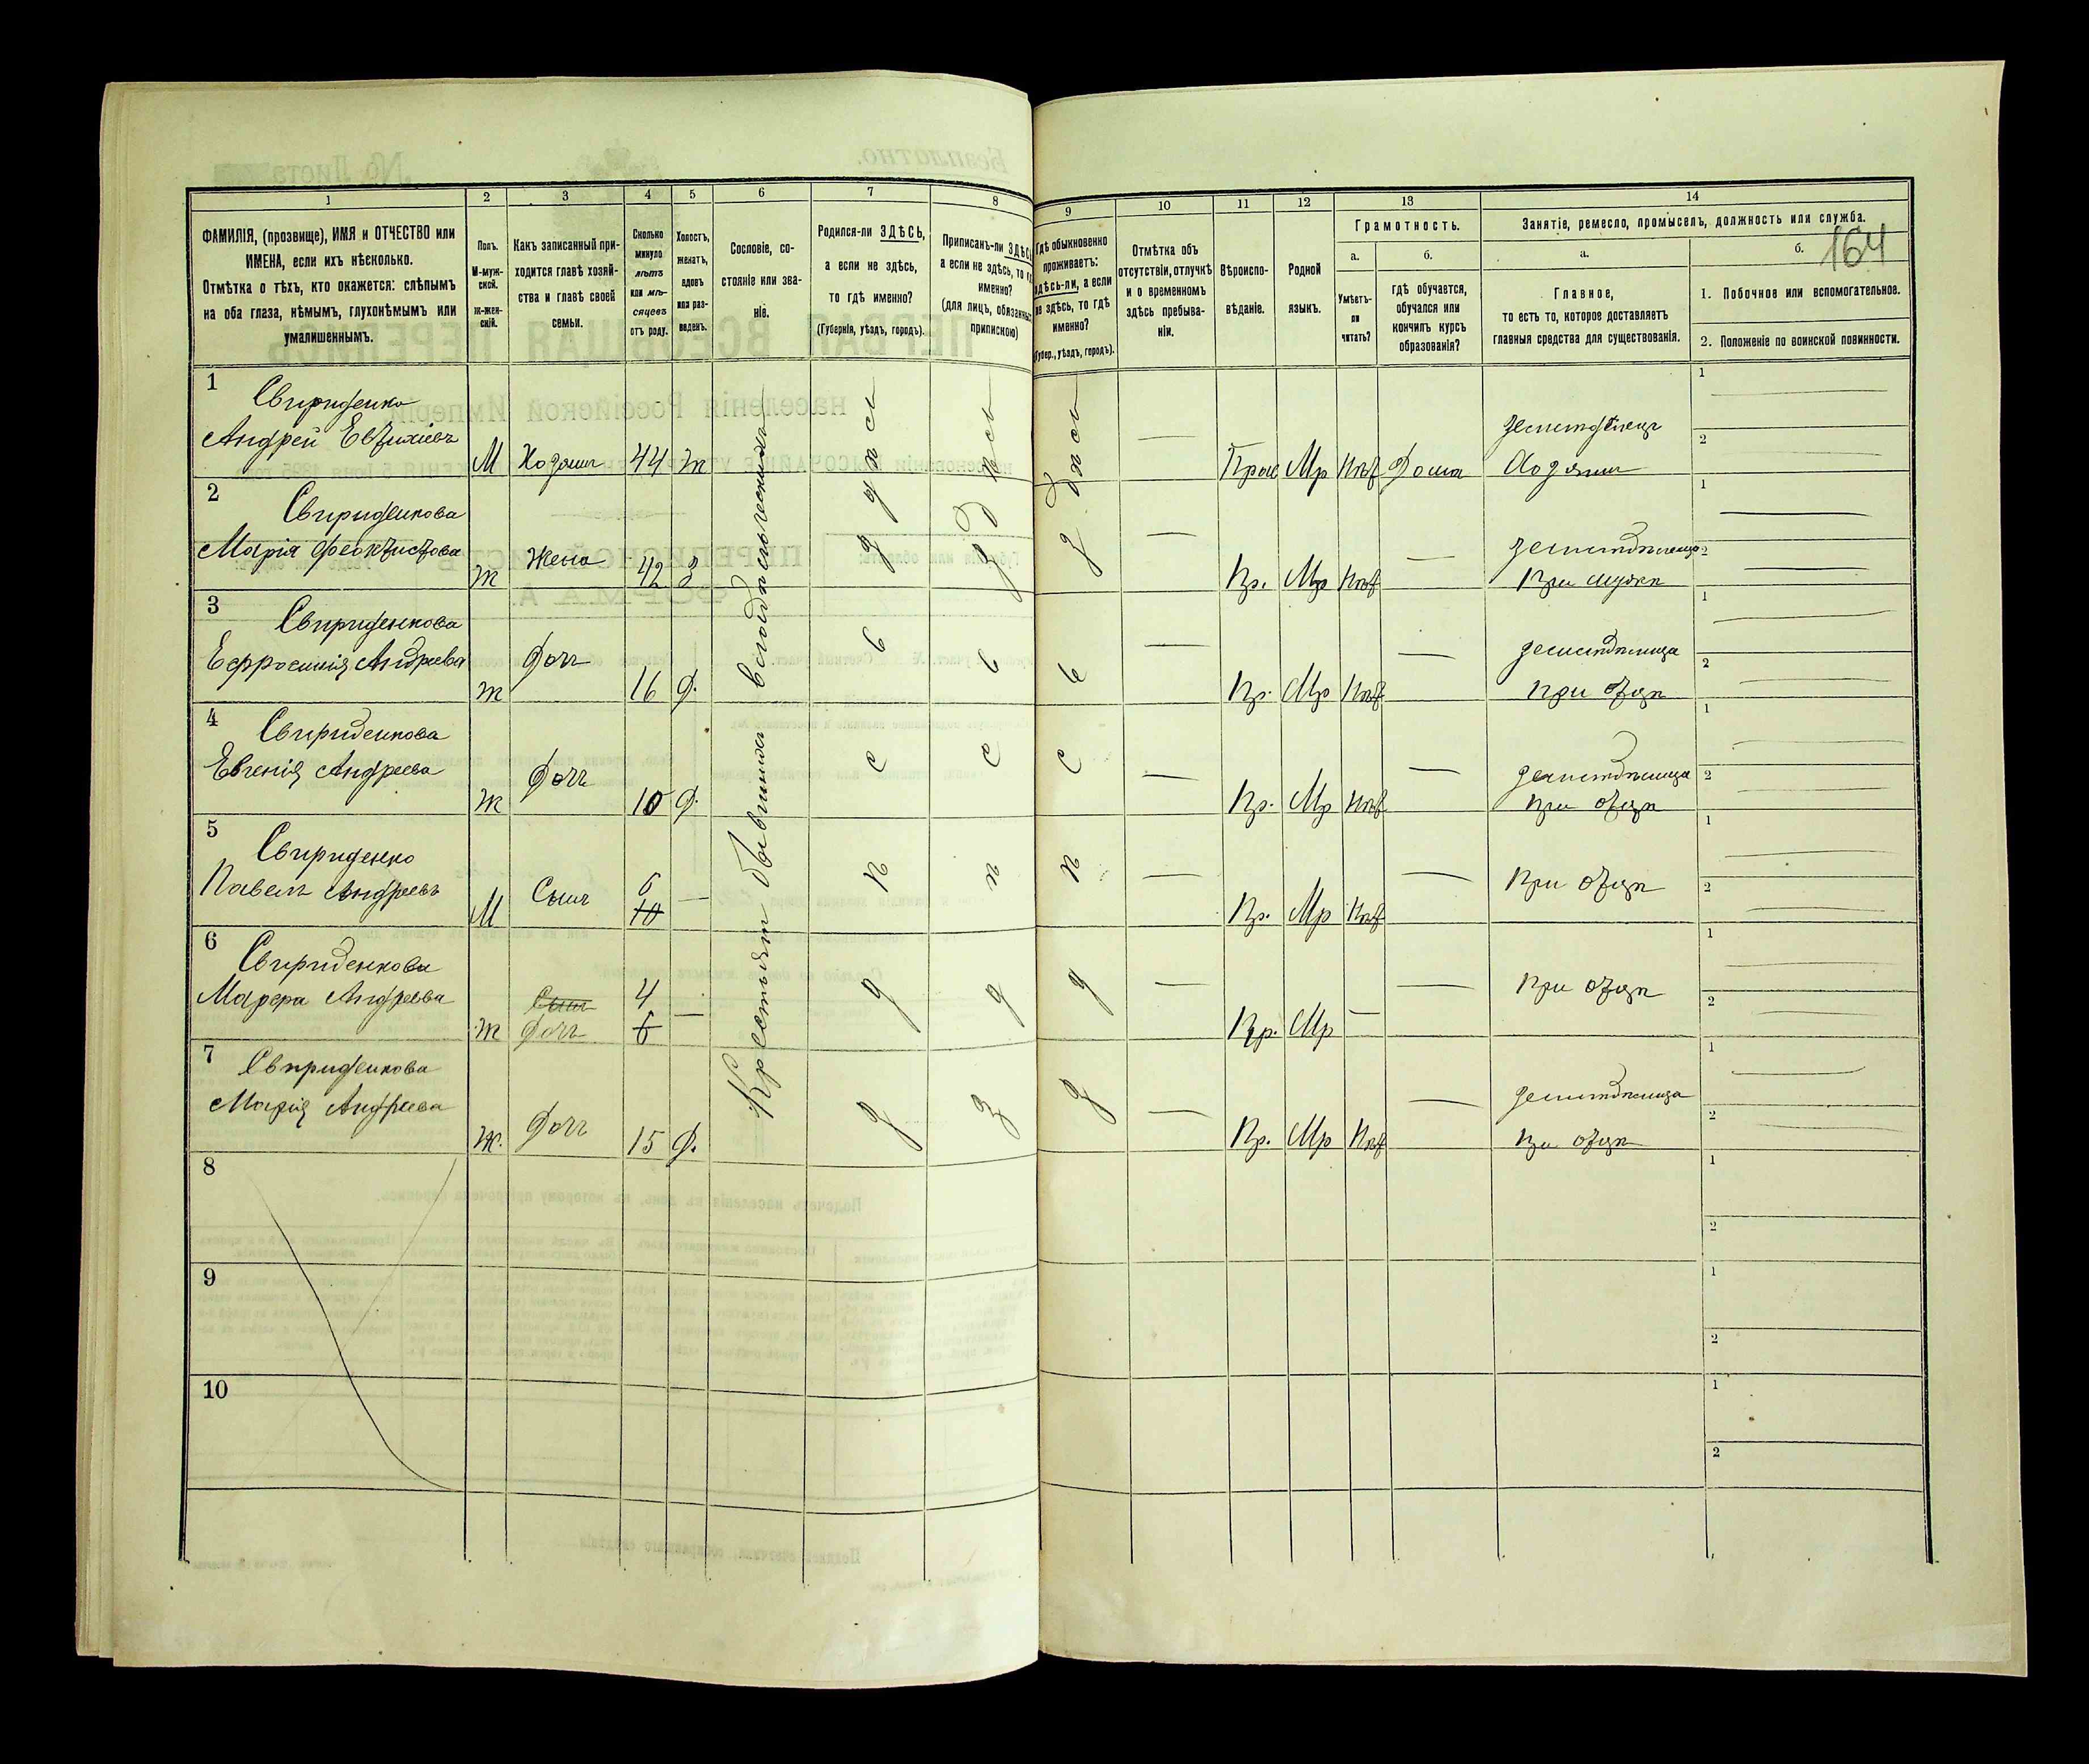 1
2
3
4
5
6
7
8
9
10
11
12
13
14
ФАМИЛІЯ, (прозвище), ИМЯ и ОТЧЕСТВО или
ИМЕНА, если ихъ нѣсколько.
Отмѣтка о тѣхъ, кто окажется: слѣпымъ
на оба глаза, нѣмымъ, глухонѣмымъ или
умалишеннымъ.
Полъ.
М-муж-
ской.
Ж-жен-
скій.
Какъ записанный при-
ходится главѣ хозяй-
ства и главѣ своей
семьи.
Сколько
минуло
лѣтъ
или мѣ-
сяцевъ
отъ роду.
Холостъ,
женатъ,
вдовъ
или раз-
веденъ.
Сословіе, со-
стояніе или зва-
ніе.
Родился-ли ЗДѢСЬ,
а если не здѣсь,
то гдѣ именно?
(Губернія, уѣздъ, городъ).
Приписанъ-ли ЗДѢСЬ
а если не здѣсь, то гдѣ
именно?
(для лицъ, обязанныхъ
припискою)
Гдѣ обыкновенно
проживаетъ:
здѣсь-ли, а если
не здѣсь, то гдѣ
именно?
(Губер., уѣздъ, городъ).
Отмѣтка объ
отсутствіи, отлучкѣ
и о временномъ
здѣсь пребыва-
ніи.
Вѣроиспо-
вѣданіе.
Родной
языкъ.
Грамотность.
а.
Умѣетъ-
ли
читать?
б.
гдѣ обучается,
обучался или
кончилъ курсъ
образованія?
Занятіе, ремесло, промыселъ, должность или служба.
а.
Главное,
то есть то, которое доставляетъ
главныя средства для существованія.
б.
164
1. Побочное или вспомогательное.
2. Положеніе по воинской повинности.
Крестьян бывших
здѣсь
здѣсь
здѣсь
1
Свириденко
Андрей Евтихіевъ
М Хозяин 44 ж
Прав Мр Нѣт Дома
земледѣлец
Хозяин
1
2
2
Свириденкова
Марія Феоктистова
Ж Жена 42 з
Пр. Мр Нѣт
При мужѣ
1
2
3
Свириденкова
Ефросинія Андреева
Ж Дочь 16 д.
Пр. Мр Нѣт
земледѣлица
при отцѣ
1
2
4
Свириденкова
Евгенія Андреева
Ж Дочь 10 д.
Пр. Мр Нѣт
земледѣлица
при отцѣ
1
2
5
Свириденко
Павелъ Андреевъ
М Сынъ 6 10
Пр. Мр Нѣт
При отцѣ
1
2
6
Свириденкова
Марфа Андреева
Ж Сынъ Дочь 4 6
Пр. Мр
При отцѣ
1
2
7
Свириденкова
Марія Андреева
Ж. Дочь 15 д.
Пр. Мр Нѣт
земледѣлица
при отцѣ
1
2
8
1
2
9
1
2
10
1
2